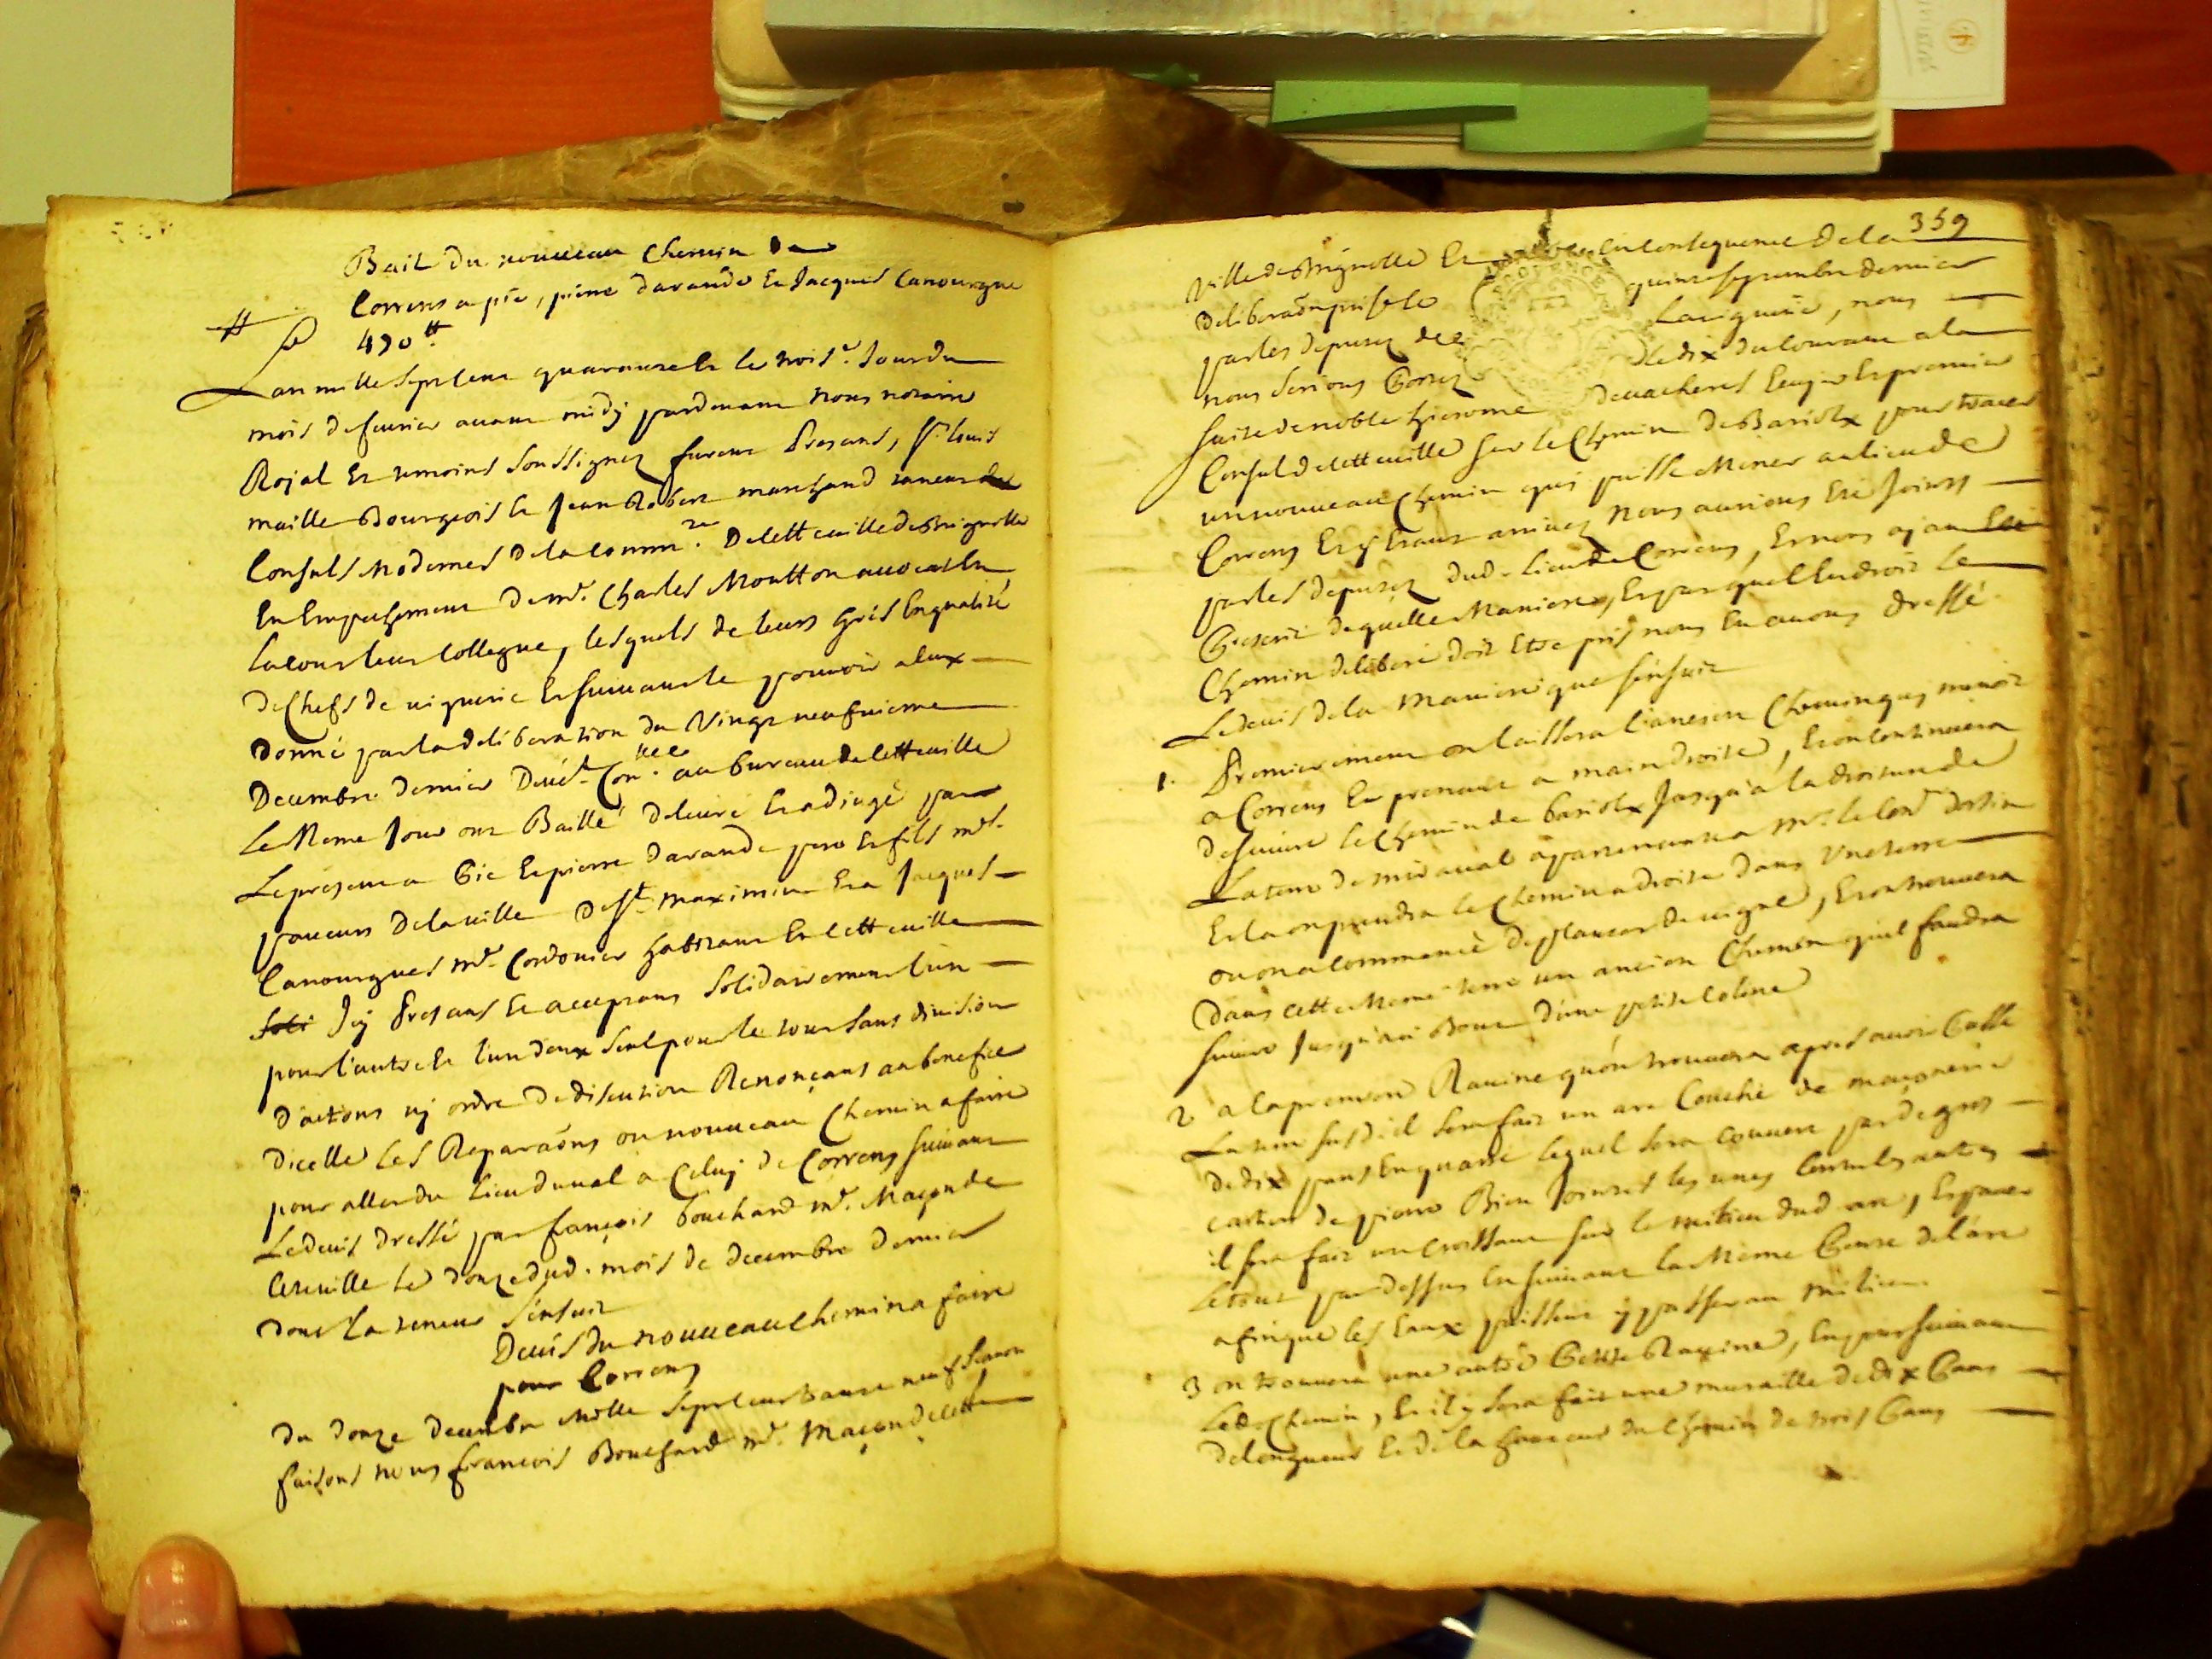 Bail du nouveau chemin de
Correns a pie, piere davande Et Jacques Canourgue
490 tt
Lan mille sept cens quarante Et le trois.e Jour du
mois de feurier auant midy pardeuant nous notaire
Royal Et temoins soussignez furent Presans, Sr. louis
maille Bourgeois Et Jean Robert marchand taneur
Consuls modernes de la comm.té de cette uille de Brignolle
En Empechement de me. Charles Moutton auocat En
la cour leur collegue, lesquels de leurs gres En qualité
de chefs de uiguerie Et suiuant le pouuoir a Eux
donné par la deliberation du Vingt neufuieme
Decembre dernier au bureau de cette uille
Le Meme Jour ont Baillé deliuré Et adiugé par
Le present a Pie Et pierre davande pere Et fils mes.
paueurs de la uille de St. maximin Et a Jacques
Canourgues me. Cordonier habitant En cette uille
Icy Presans Et acceptans solidairement l'un
pour l'autre Et l'un d'eux seul pour le tout sans diuision
d'actions ny ordre de discution Renonçans au benefice
dicelle les Reparaõns ou nouueau chemin a faire
pour aller du lieu du ual a Celuy de Correns suiuant
Le deuis dressé par françois bouchard me. Maçon de
cete uille le douze dud. mois de decembre dernier
dont la teneur sensuit
Deuis du nouueau chemin a faire
pour Correns
du douze decembre mille sept cens trante neuf
faisons nous françois Bouchard me. Maçon de cette
359
Ville de Brignolle En consequence de la
deliberaõn prise le quinze septembre dernier
par les deputez de la uiguerie, nous
nous serions portez le dix du courant a la
suite de noble hierome deuacheres Ecuyer Et premier
Consul de cette uille sur le chemin de Bariolx pour tracer
un nouueau chemin qui puisse Mener au lieu de
Correns Et y Etant arriuez nous aurions Eté Joints
par les deputez dud. lieu de Correns, Et nous ayant
Prescrit de quelle Maniere, Et par quel Endroit le
Chemin deliberé doit Etre pris nous En auons dressé
Le deuis de la maniere que sensuit
1. Premierement on laissera l'ancien chemin qui menoit
a Correns En prenant a main droite, Et on continuera
de suiure le chemin de bariolx Jusqu'a la droiture de
La terre de miraual apartenant a mr. le Con.er
Et la on prendra le chemin a droite dans Une terre
ou on a commencé de planter de uigne, Et on trouuera
dans cette Meme terre un ancien Chemin quil faudra
suiure Jusqu'au Bout d'une petite coline
2 a la premiere Rauine qu'on trouuera apres auoir
La terre susd. il sera fait un arc Couché de maçonerie
de dix pans En quarré lequel sera couuert par de gros
cartiers de pierre Bien Jointes les unes Contre les autres
il sera fait un croissant sur le milieu dud arc, Et pauer
Le tout par dessus En suiuant la Meme Pente de l'arc
afin que les Eaux puissent y passer au milieu
3 on trouuera une autre Petite Rauine, En poursuiuant
Led. Chemin, Et il y sera fait une muraille de dix Cans
de longueur Et de la hauteur du chemin de trois Cans